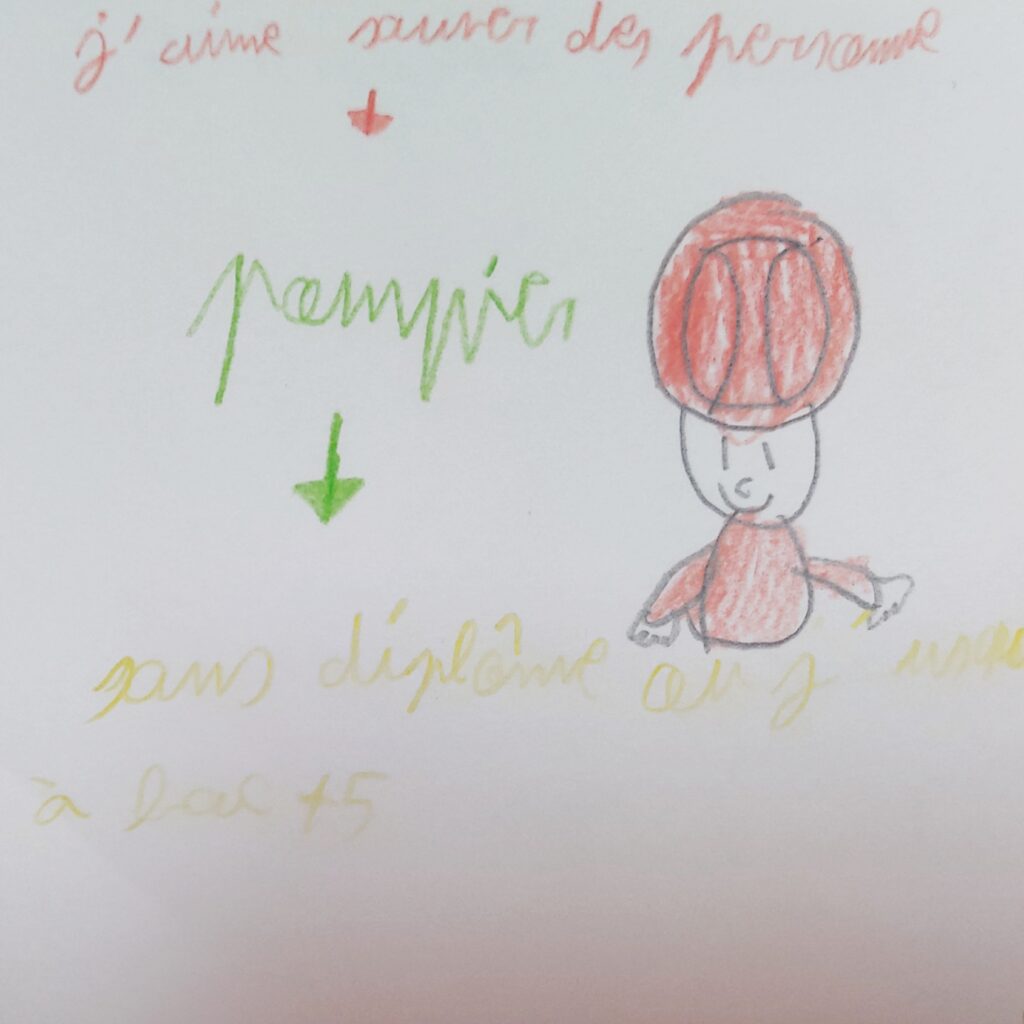 j'aime sauver des personne
pompier
sans diplôme ou j
à bac +5